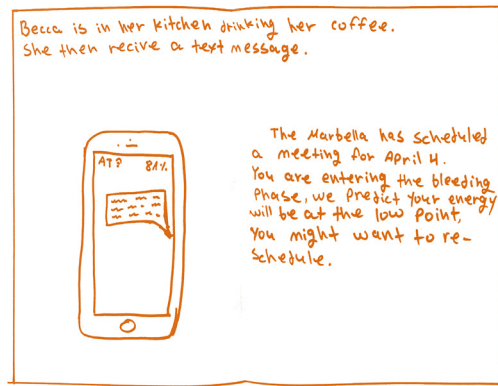 Becca is in her kitchen drinking her coffee.
She then recive a text message.
AT? 81%
The Marbella has scheduled
a meeting for April 4.
You are entering the bleeding
Phase, we Predict your energy
will be at the low point,
You might want to re-
schedule.